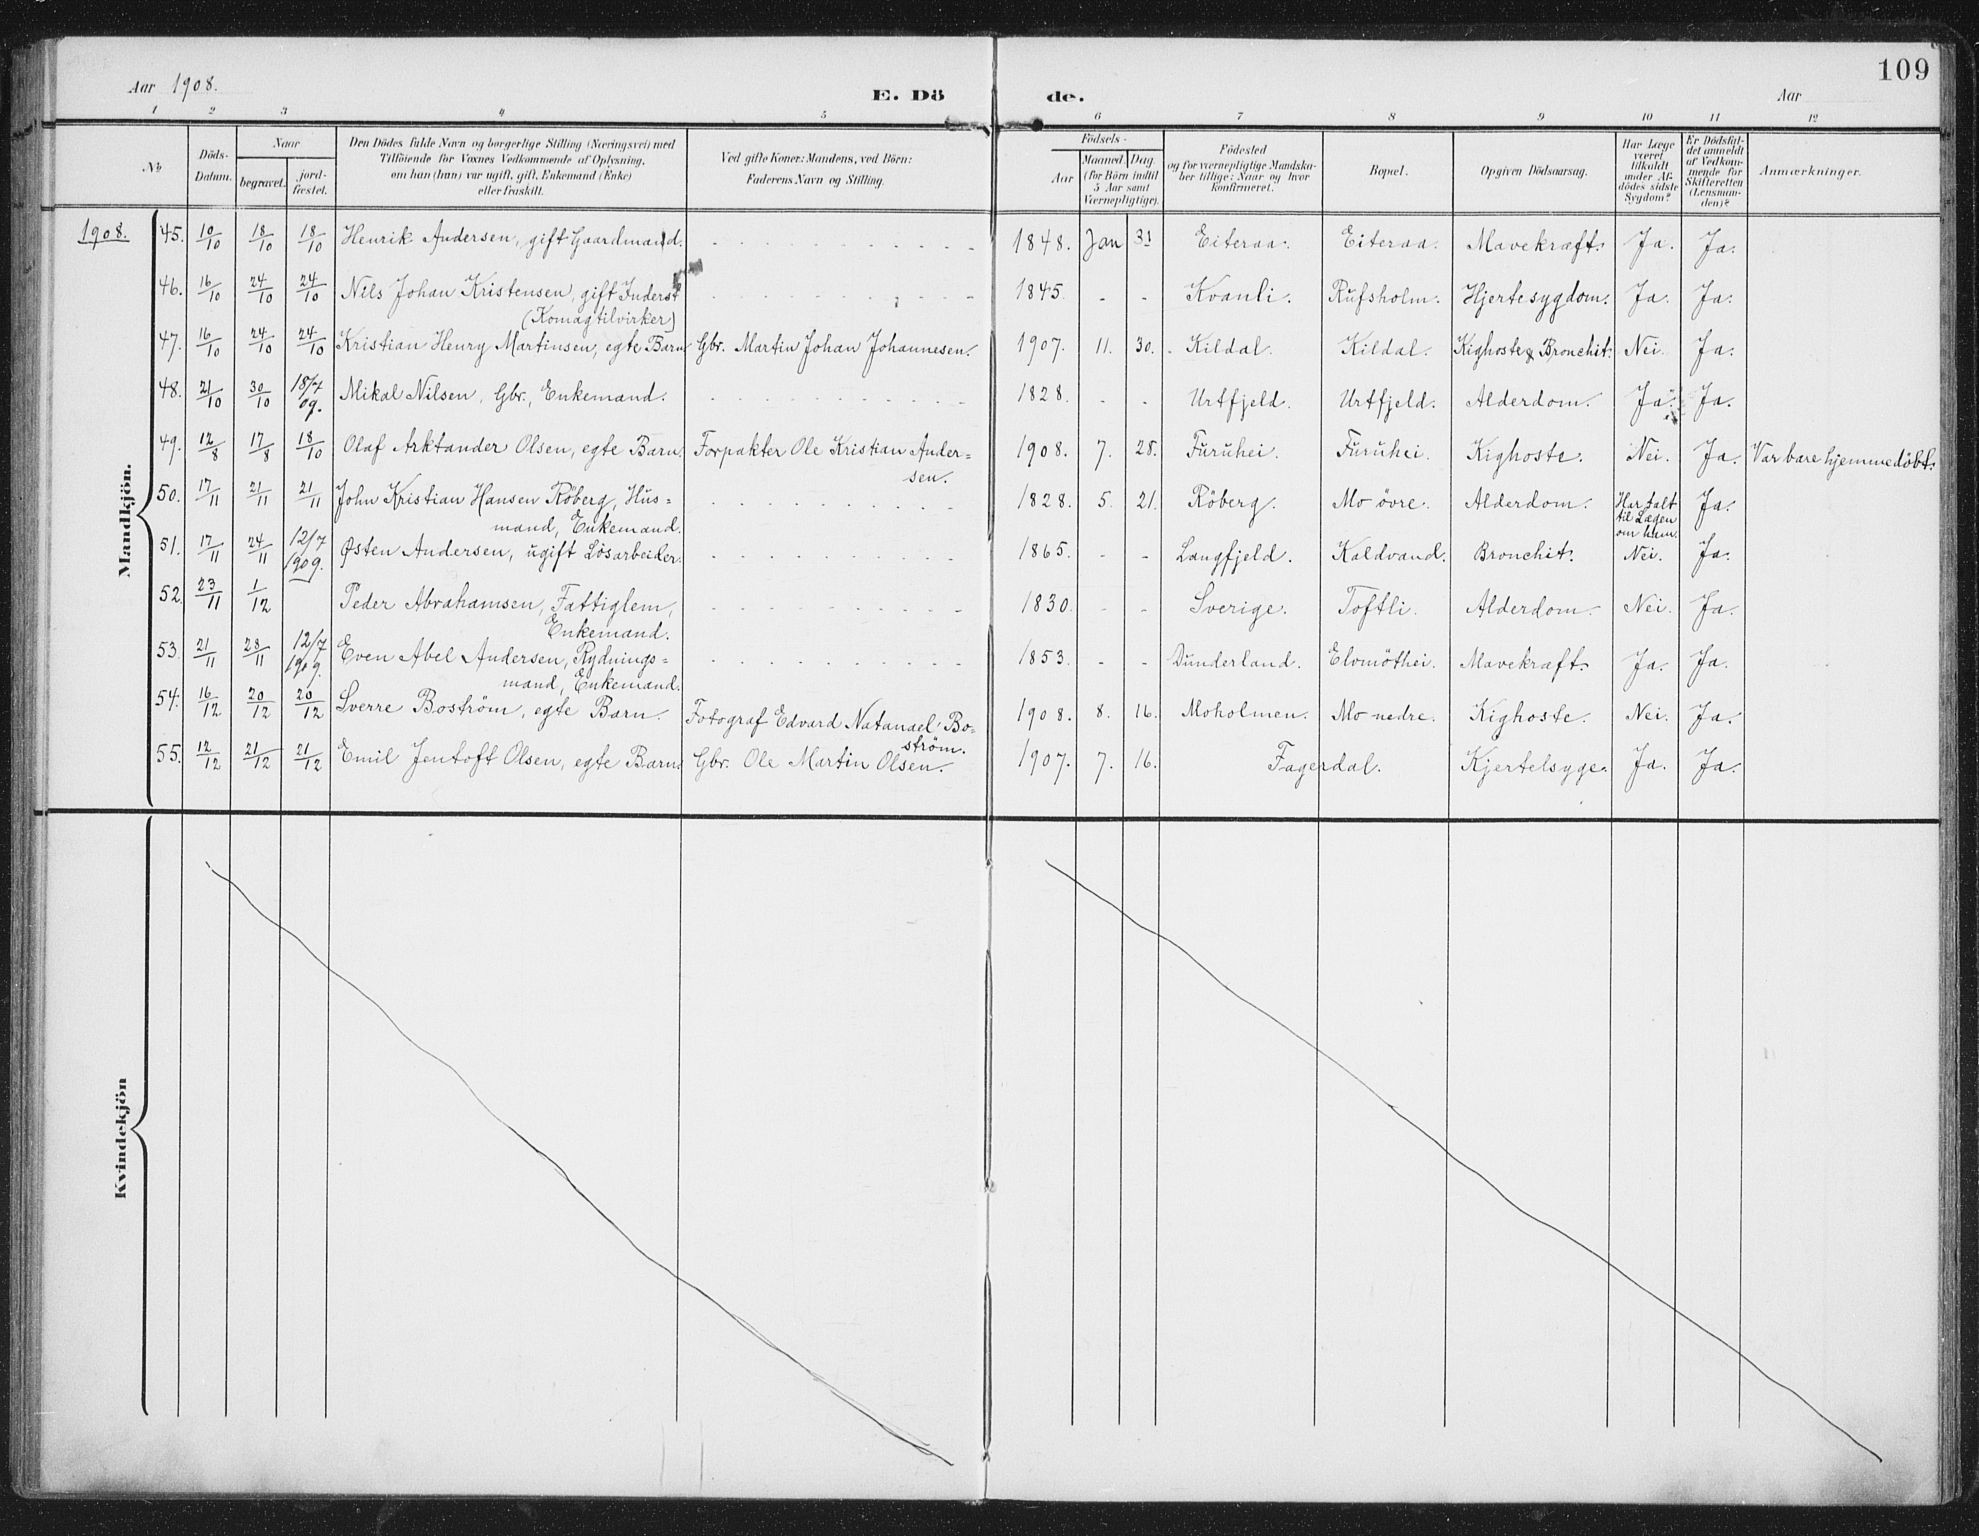 109
Aar 1908.
E. Dö de.
Aar
1 2 3 4 5 6 7 8 9 10 11 12
No
Döds-
Datum.
Naar
begravet.
jord-
fæstet.
Den Dödes fulde Navn og borgerlige Stilling (Næringsvei) med
Tilföiende for Voxnes Vedkommende af Oplysning,
om han (hun) var ugift, gift, Enkemand (Enke)
eller fraskilt.
Ved gifte Koner: Mandens, ved Börn:
Faderens Navn og Stilling.
Födsels-
Aar
Maaned. Dag.
(for Börn indtil
5 Aar samt
Værnepligtige).
Födested
og for værnepligtige Mandska-
ber tillige: Naar og hvor
konfirmeret.
Bopæl.
Opgiven Dödsaarsag.
Har Læge
været
tilkaldt
under Af-
dödes sidste
Sygdom?
Er Dödsfal-
det anmeldt
af Vedkom-
mende for
Skifteretten
(Lensman-
den)?
Anmærkninger.
Mandkjön.
1908. 45. 10/10 18/10 18/10 Henrik Andersen, gift Gaardmand. 1848. Jan 31 Eiteraa. Eiteraa. Mavekræft. Ja. Ja.
46. 16/10 24/10 24/10 Nils Johan Kristensen, gift Inderst 1845. - - Kvanli. Rufsholm. Hjertesygdom. Ja. Ja.
(Komagtilvirker)
47. 16/10 24/10 24/10 Kristian Henry Martinsen, egte Barn Gbr. Martin Johan Johannesen. 1907. 11. 30. Kildal. Kildal. Kighoste & Bronchit. Nei. Ja.
48. 21/10 30/10 18/7 09. Mikal Nilsen, Gbr., Enkemand. 1828. - - Urtfjeld. Urtfjeld. Alderdom. Ja. Ja.
49. 12/8 17/8 18/10 Olaf Arktander Olsen, egte Barn. Forpakter Ole Kristian Ander=
sen. 1908. 7. 28. Furuhei. Furuhei. Kighoste. Nei. Ja. Var bare hjemmedöbt.
50. 17/11 21/11 21/11 John Kristian Hansen Röberg, Hus=
mand, Enkemand. 1828. 5. 21. Röberg. Mo övre. Alderdom. Har talt
til Lægen
om ham. Ja.
51. 17/11 24/11 12/7 1909. Østen Andersen, ugift Lösarbeider. 1865. - - Langfjeld. Kaldvand. Bronchit. Nei. Ja.
52. 23/11 1/12 Peder Abrahamsen, Fattiglem,
Enkemand. 1830. - - Sverige. Toftli. Alderdom. Nei. Ja.
53. 21/11 28/11 12/7 1909. Even Abel Andersen, Rydnings=
mand, Enkemand. 1853. - - Dunderland. Mavekræft. Ja. Ja.
54. 16/12 20/12 20/12 Sverre Boström, egte Barn. Fotograf Edvard Natanael Bo=
ström. 1908. 8. 16. Moholmen. Mo nedre. Kighoste. Nei. Ja.
55. 12/12 21/12 21/12 Emil Jentoft Olsen, egte Barn. Gbr. Ole Martin Olsen. 1907. 7. 16. Fagerdal. Kjertelsyge. Ja. Ja.
Kvindekjön